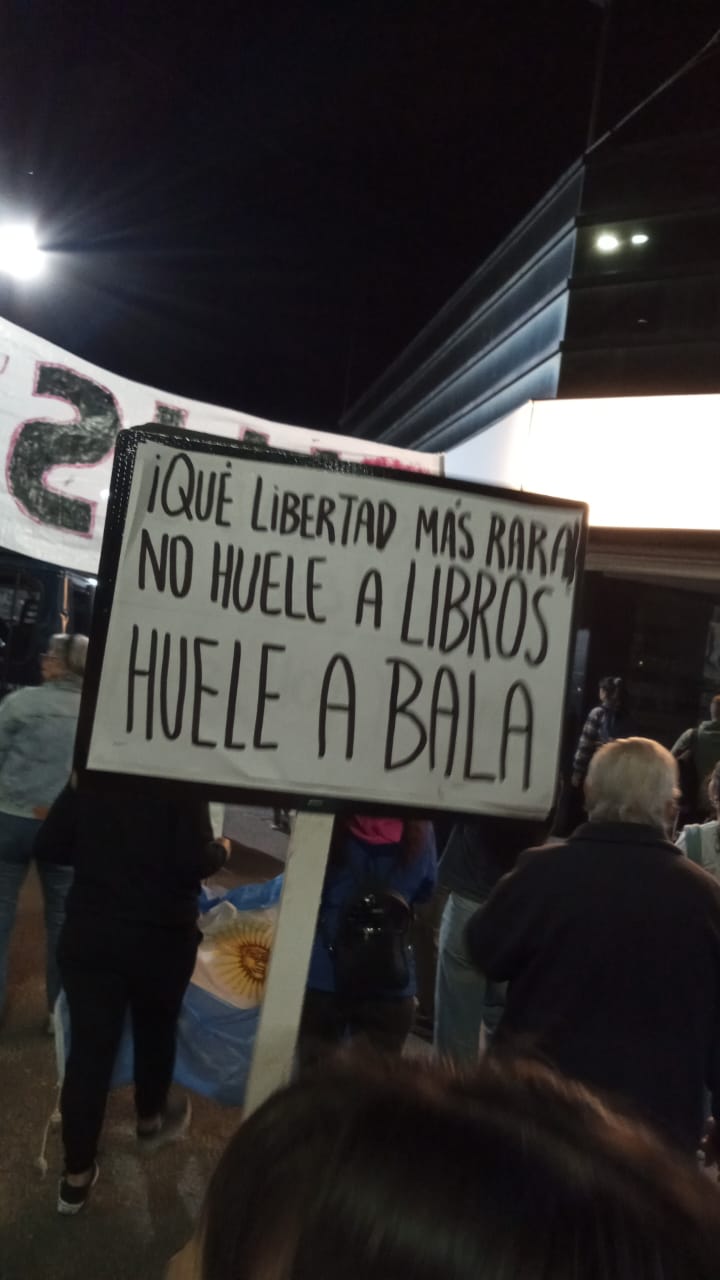 ¡QUÉ LIBERTAD MÁS RARA!
NO HUELE A LIBROS
HUELE A BALA